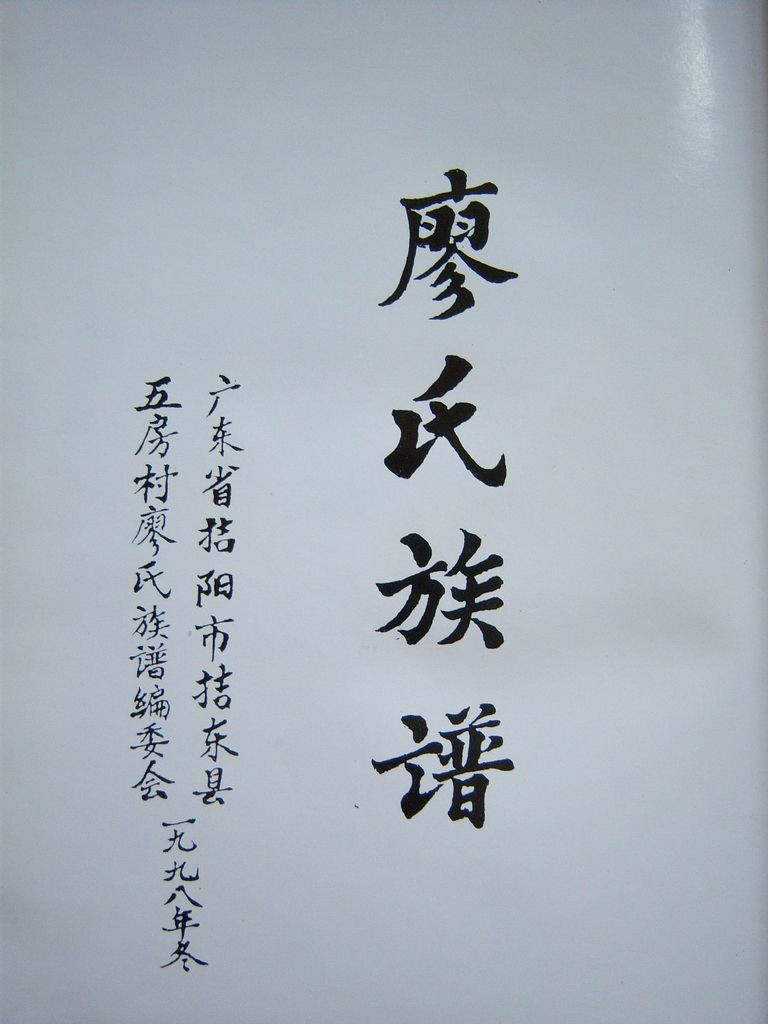 廖氏族譜
广东省揭阳市揭东县
五房村廖氏族譜编委会
一九九八年冬